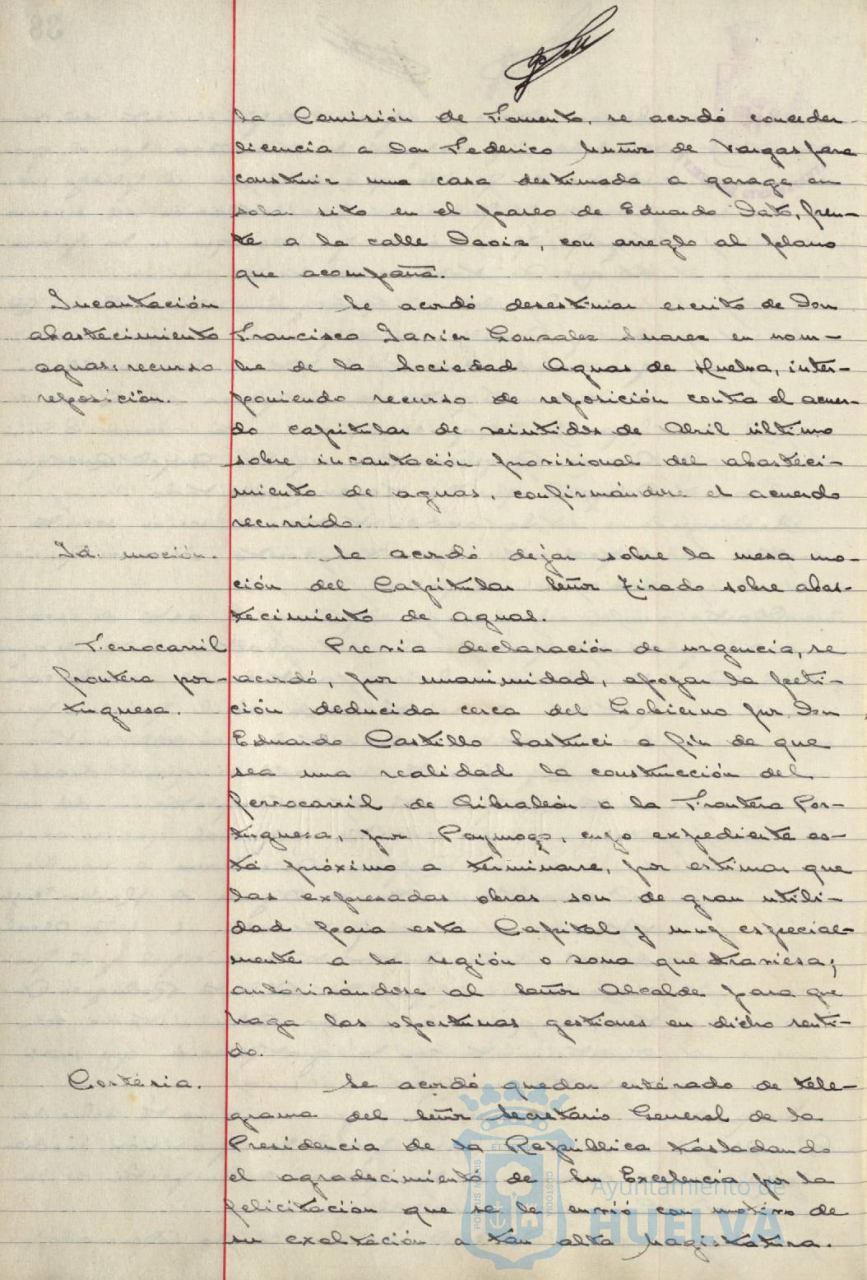 la Comisión de Fomento, se acordó conceder
licencia a Don Federico Muñoz de Vargas para
construir una casa destinada a garage en
solar sito en el paseo de Eduardo Dato, fren-
te a la calle Daoiz, con arreglo al plano
que acompaña.
Incautación
abastecimiento
aguas: recurso
reposición.
Se acordó desestimar escrito de Don
Francisco Javier Gonzalez Suarez en nom-
bre de la Sociedad Aguas de Huelva, inter-
poniendo recurso de reposición contra el acuer-
do capitular de veintidos de Abril último
sobre incautación provisional del abasteci-
miento de aguas, confirmándose el acuerdo
recurrido.
Id. moción.
Se acordó dejar sobre la mesa mo-
ción del Capitular Señor Tirado sobre abas-
tecimiento de aguas.
Ferrocarril
frontera por-
tuguesa.
Previa declaración de urgencia, se
acordó, por unanimidad, apoyar la peti-
ción deducida cerca del Gobierno por Don
Eduardo Castillo Lastuci a fin de que
sea una realidad la construcción del
ferrocarril de Gibraleón a la Frontera Por-
tuguesa, por Paymogo, cuyo expediente es-
tá próximo a terminarse, por estimar que
las expresadas obras son de gran utili-
dad para esta Capital y muy especial-
mente a la región o zona que traviesa;
autorizándose al Señor Alcalde para que
haga las oportunas gestiones en dicho senti-
do.
Cortésia.
Se acordó quedar enterado de tele-
grama del Señor Secretario General de la
Presidencia de la República trasladando
el agradecimiento de Su Excelencia por la
felicitación que se le envió con motivo de
su exaltación a tan alta Magistratura.
Ayuntamiento de
HUELVA